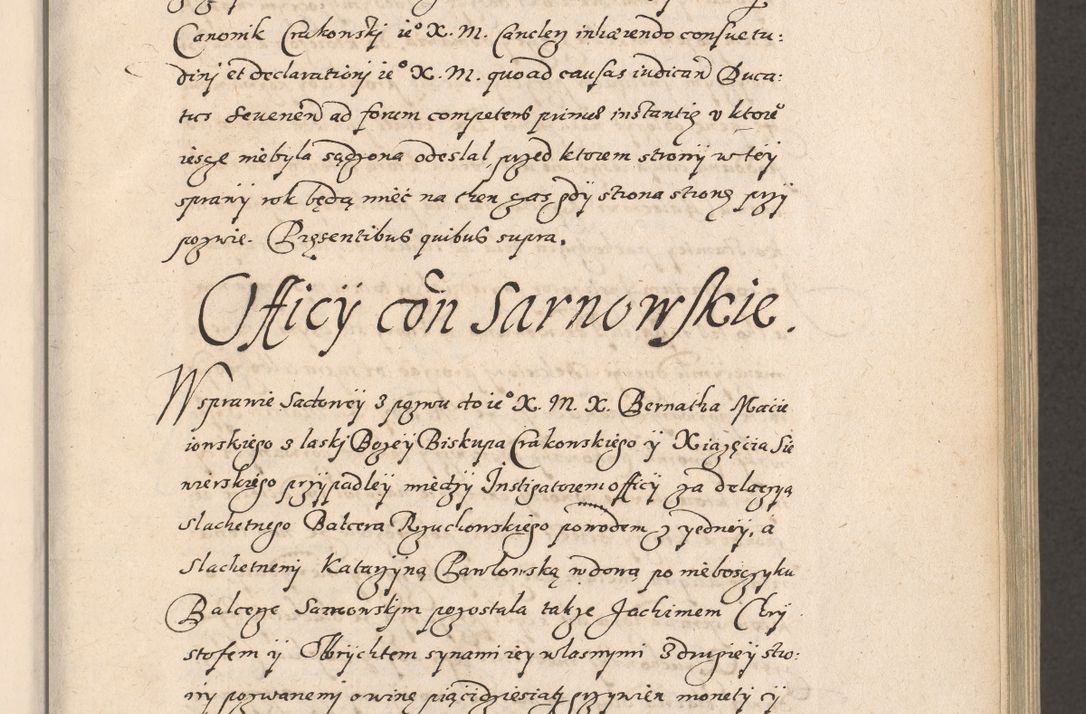 Canonik Crakonskj ie° X. M. Canclen inhærendo consuetu:
dinj et declarationj ie° X. M. quoad causas iudican Duca:
tus Seueren ad forum competens primæ instantię v ktore°
iescze niebyla sądzona odeslal, przed ktorem strony w tej
sprawy rok będą mieć na then czas gdÿ strona stronę przÿ
pozwie. Pręsentibus quibus supra.
Officÿ con Sarnowskie.
W sprawie Sądowej z pozwu do ie° X. M. X. Bernatha Macie
ionskiego z laskj Bożej Biskupa Crakonskiego ÿ Xiążęcia Sie
wierskiego przÿpadlej miedzÿ Instigatorem officÿ za delacÿą
slachetnego Balcera Rzuchowskiego powodem z iedneÿ, a
slachetnemj Katarzÿną Pawlowską wdową po nieboszczÿku
Balcerze Sarnowskim pozostala także Jachimem Chrÿ
stofem ÿ Olbrÿchtem synami ieÿ wlasnymi z drugiej stro:
nÿ pozwanemj o winę pięćidziesiąt grzywien monety cÿ